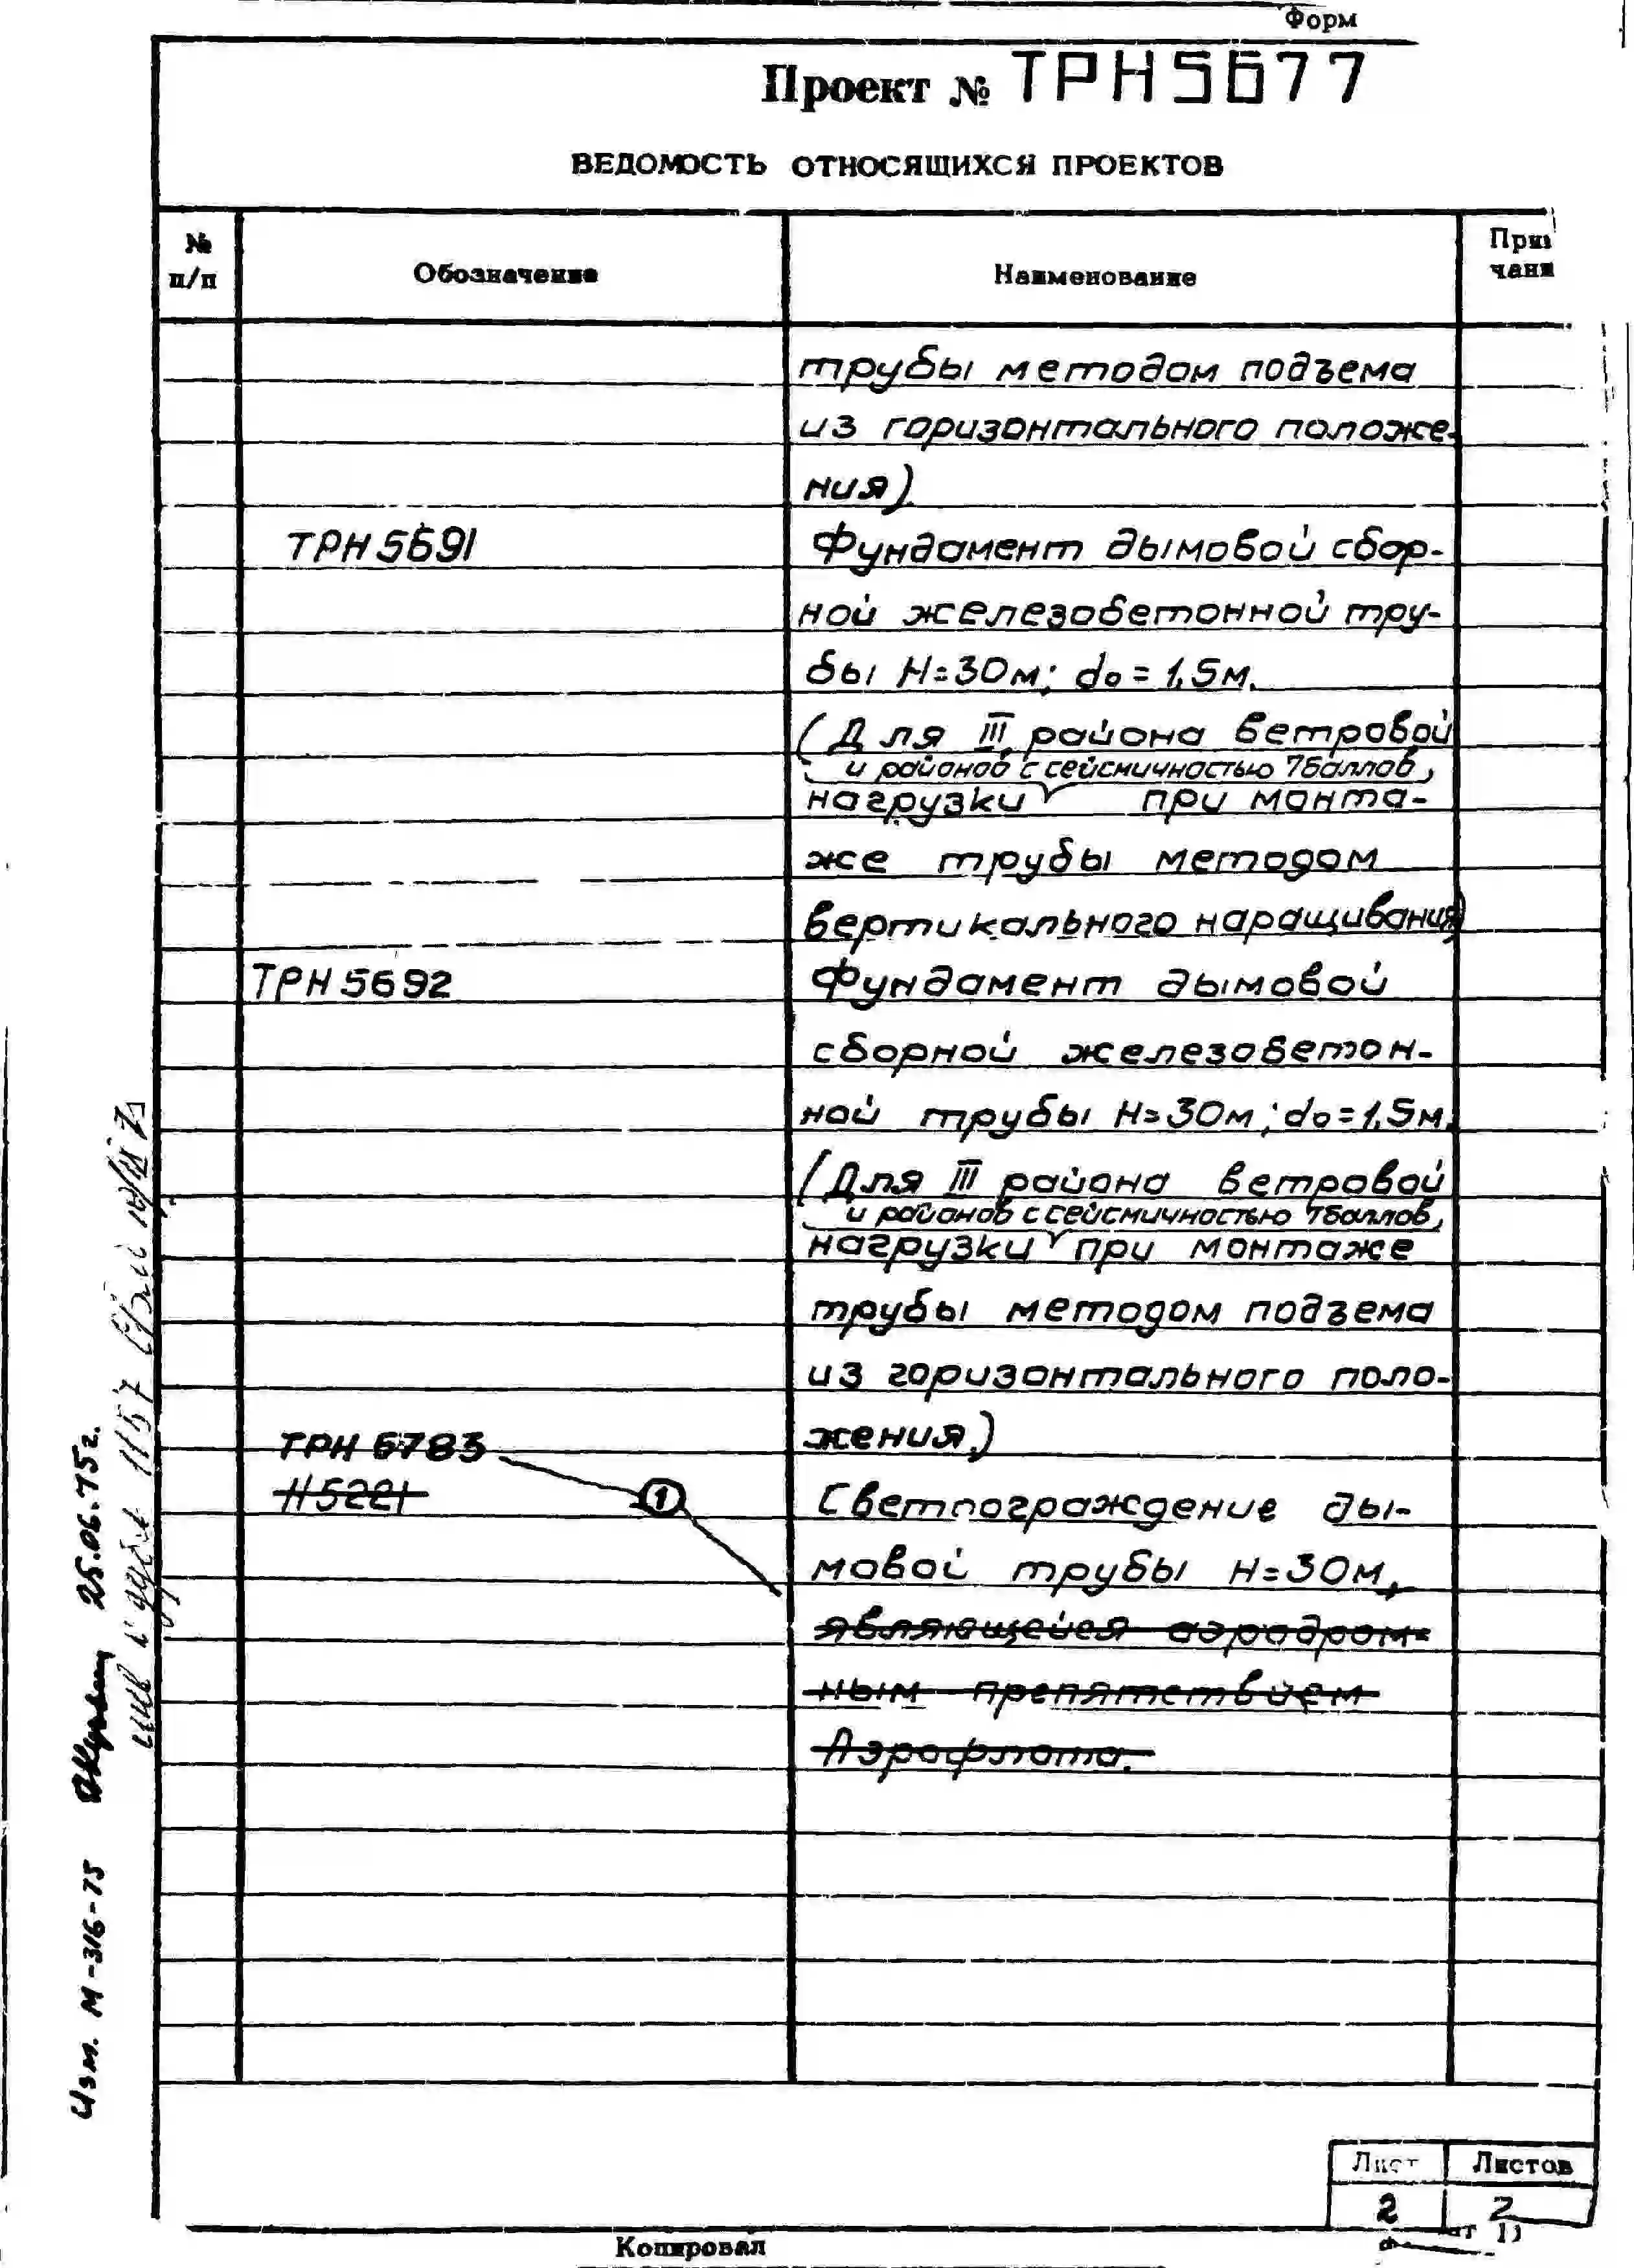 Форм
Проект № ТРН5677
ВЕДОМОСТЬ ОТНОСЯЩИХСЯ ПРОЕКТОВ
№ п/п
Обозначение
Наименование
При
чани
трубы методом подъема
из горизонтального положе-
ния)
ТРН5691 Фундамент дымовой сбор-
ной железобетонной тру-
бы Н=30м; dо=1,5м.
(Для III района ветровой
и районов с сейсмичностью 7баллов,
нагрузки при монта-
же трубы методом
вертикального наращивания)
ТРН5692 Фундамент дымовой
сборной железобетон-
ной трубы Н=30м; dо=1,5м.
(Для III района ветровой
и районов с сейсмичностью 7баллов,
нагрузки при монтаже
трубы методом подъема
из горизонтального поло-
ТРН 6783 жения.)
Н5221 1 Светоограждение ды-
мовой трубы Н=30м,
являющейся аэродром-
ным препятствием
Аэрофлота.
Изм. М-316-75 25.06.75г.
Лист Листов
2 2
Копировал